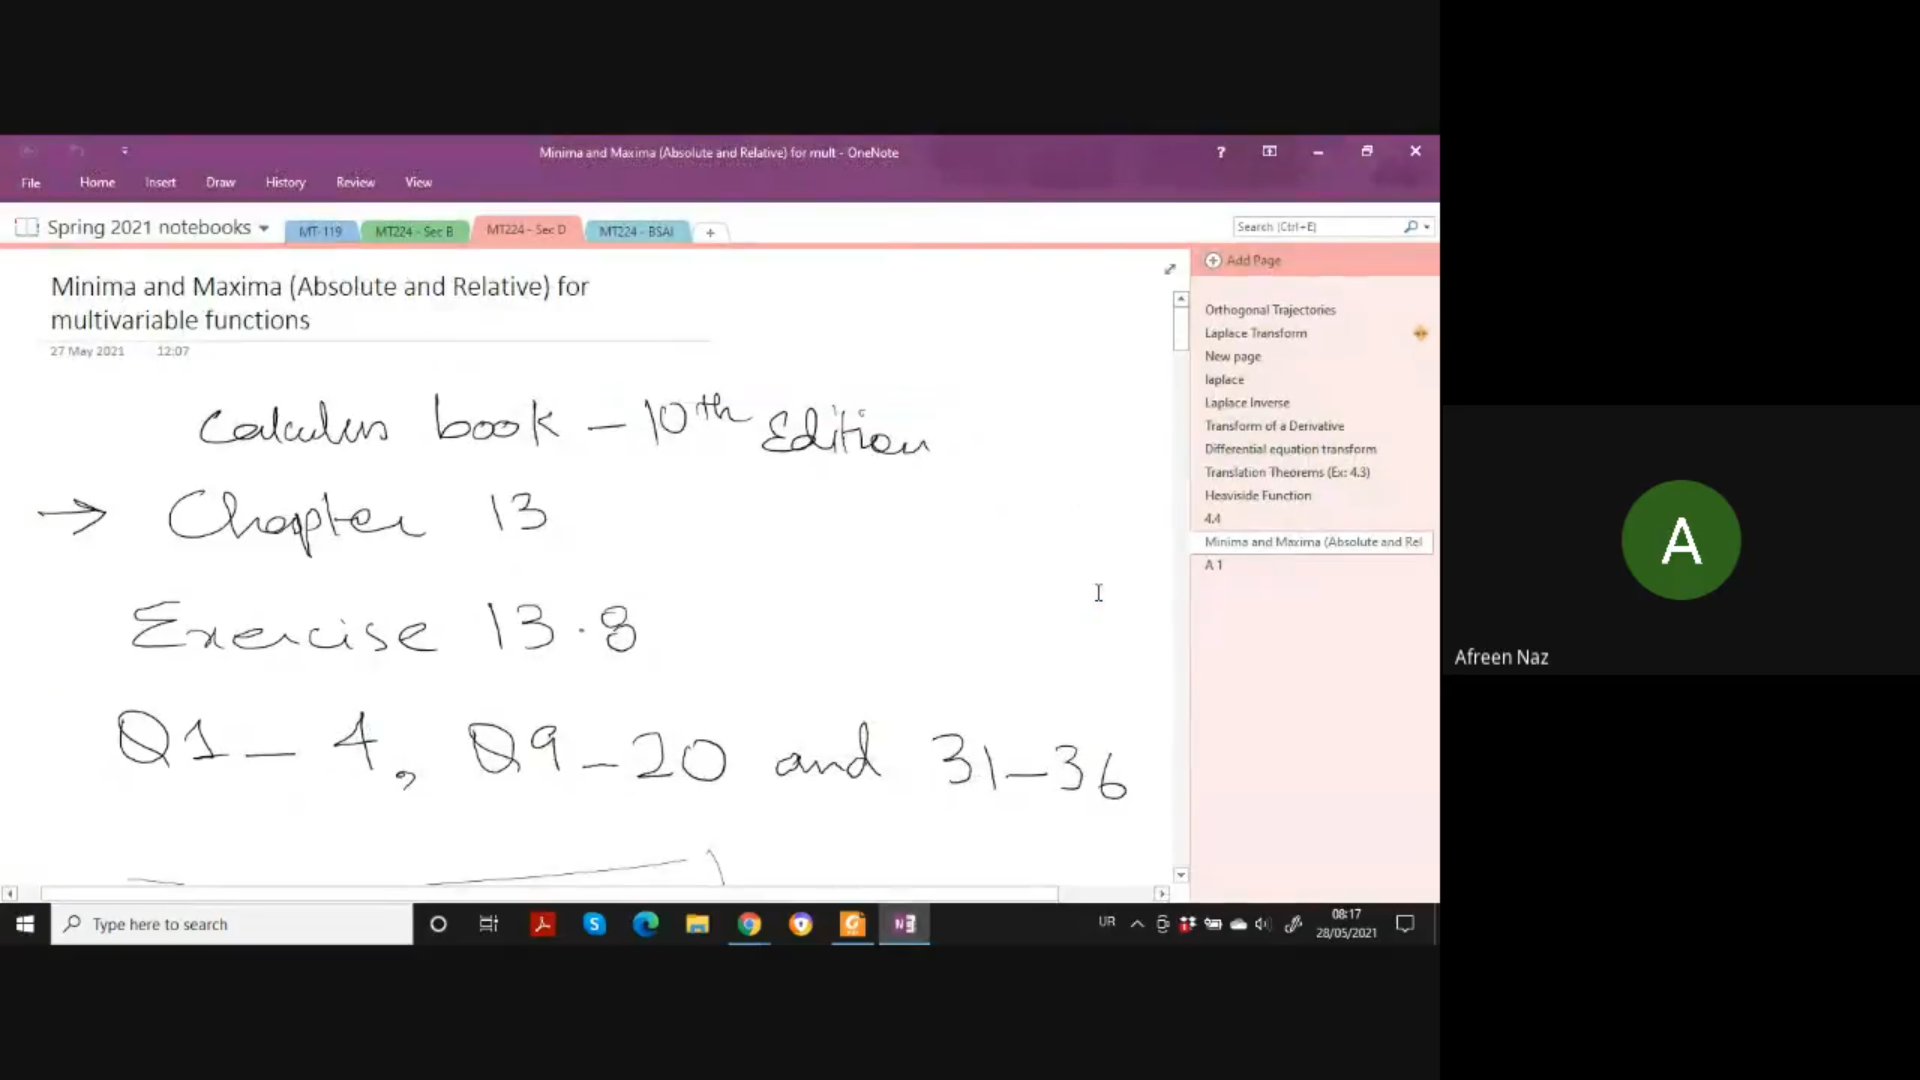 Minima and Maxima (Absolute and Relative) for mult - OneNote
?
File Home Insert Draw History Review View
Spring 2021 notebooks MT-119 MT224 - Sec B MT224 - Sec D MT224 - BSAI +
Search (Ctrl+E)
Minima and Maxima (Absolute and Relative) for
multivariable functions
27 May 2021 12:07
Calculus book - 10th Edition
→ Chapter 13
Exercise 13.8
Q1 - 4, Q9 - 20 and 31 - 36
Add Page
Orthogonal Trajectories
Laplace Transform
New page
laplace
Laplace Inverse
Transform of a Derivative
Differential equation transform
Translation Theorems (Ex: 4.3)
Heaviside Function
4.4
Minima and Maxima (Absolute and Rel
A 1
A
Afreen Naz
Type here to search
UR
08:17
28/05/2021